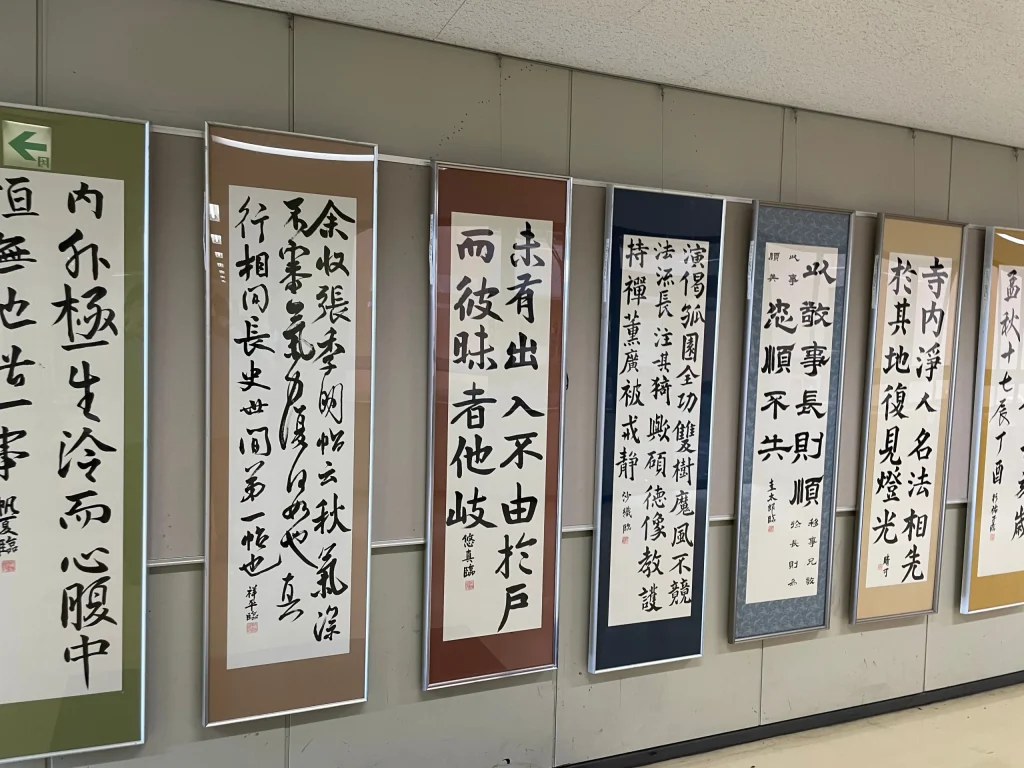 内外極生冷而心腹中
恒無他苦一事
余收張季明帖云秋氣深
不審氣力復何如也真
行相間長史世間第一帖也
祥平臨
未有出入不由於戸
而彼昧者他岐
悠真臨
演偈弧園全功雙樹魔風不競
法流長注其猗歟碩德像教護
持禪薫廣被戒靜
沙織臨
以敬事長則順
忠順不失
圭太郎臨
寺内淨人名法相先
於其地復見燈光
孟秋十七辰丁酉